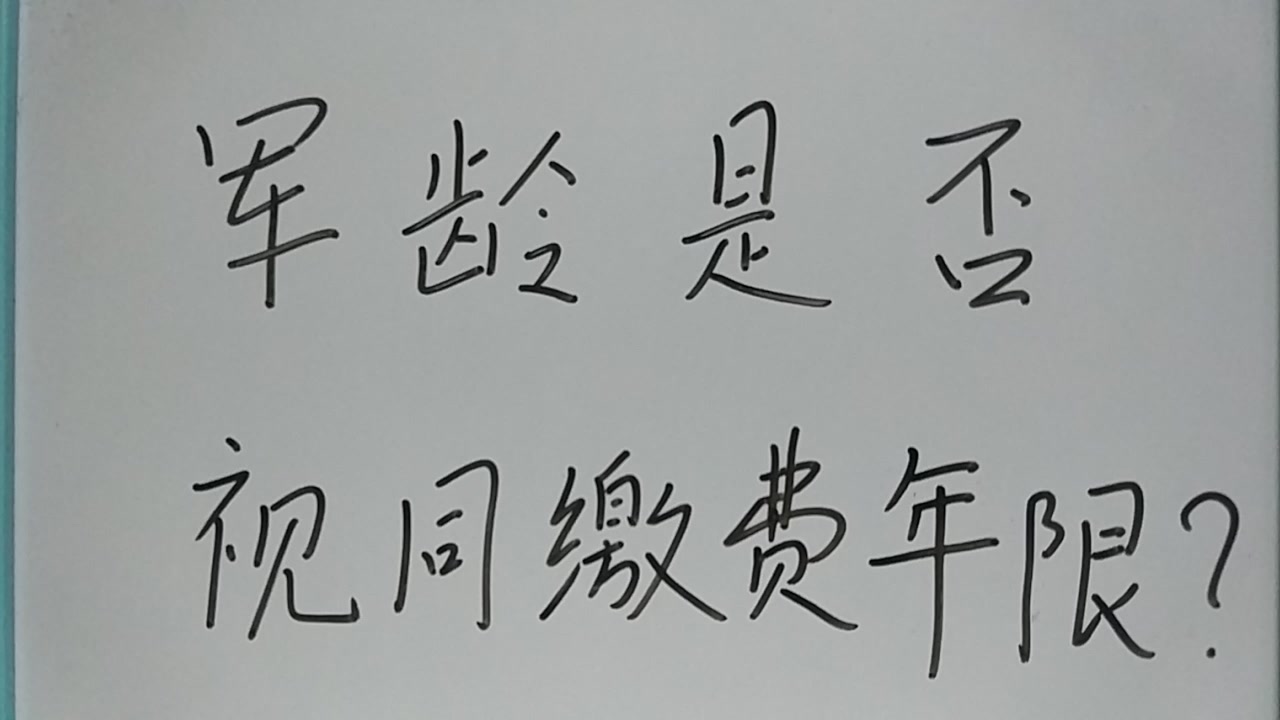 军龄是否
视同缴费年限?